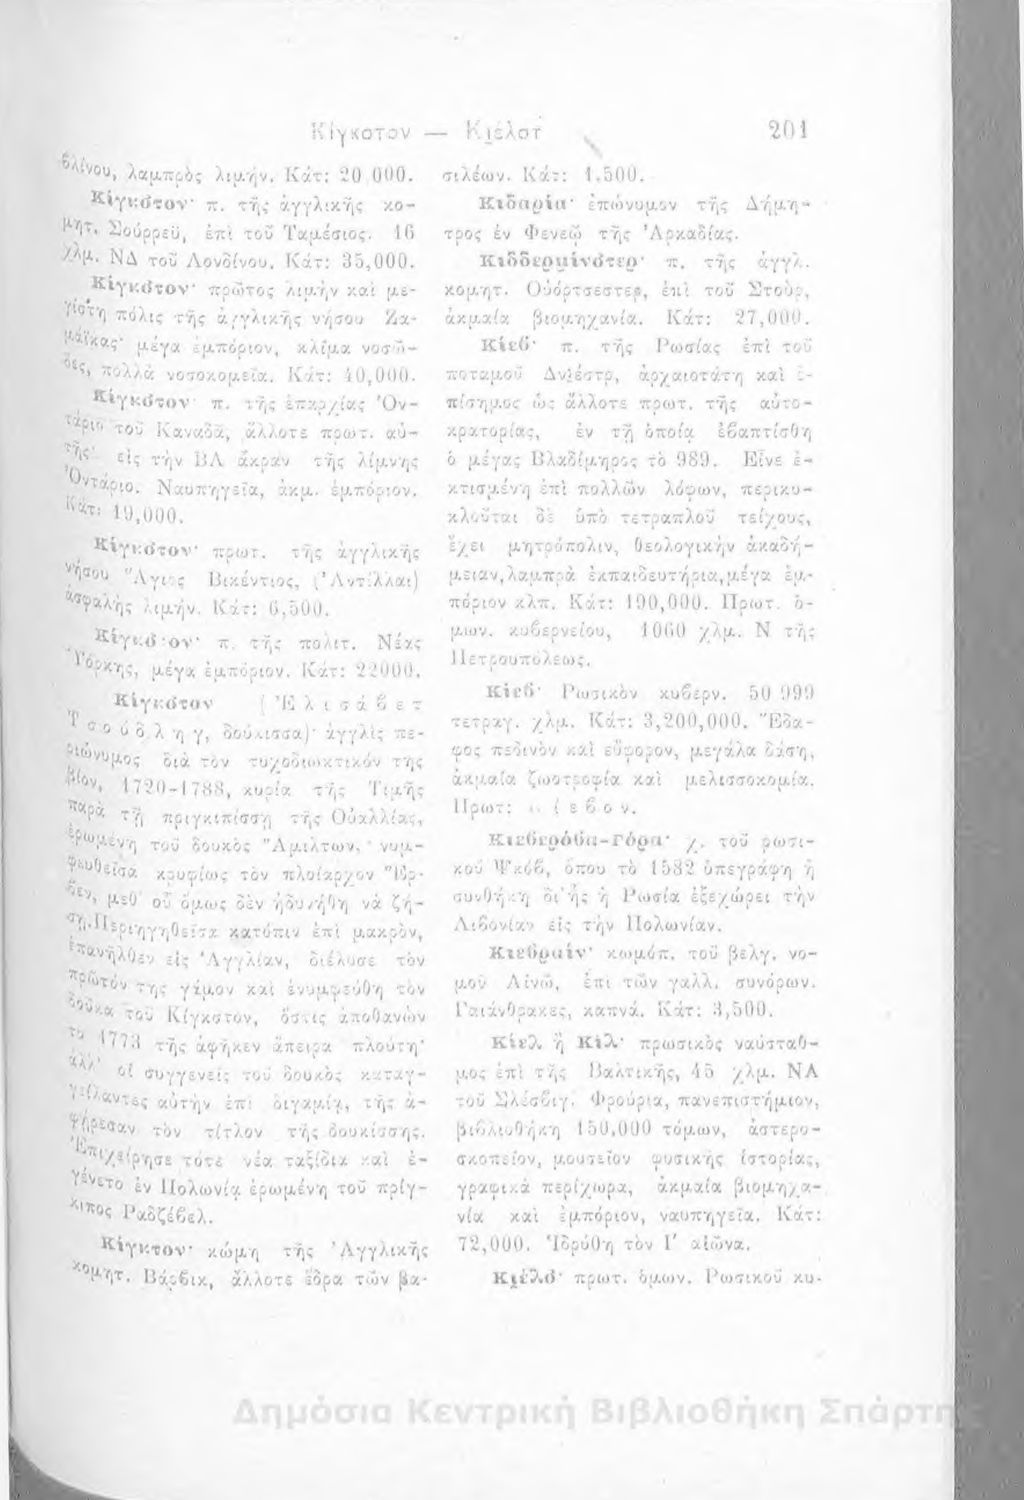 Κίγκστον — Κιέλστ 201
βλίνου, λαμπρὸς λιμήν. Κάτ: 20,000.
Κίγκστον· π. τῆς ἀγγλικῆς κο-
μητ. Σούρρεϋ, ἐπὶ τοῦ Ταμέσιος. 16
χλμ. ΝΔ τοῦ Λονδίνου. Κάτ: 35,000.
Κίγκστον· πρῶτος λιμὴν καὶ με-
γίστη πόλις τῆς ἀγγλικῆς νήσου Ζα-
μάϊκας· μέγα ἐμπόριον, κλίμα νοσῶ-
δες, πολλὰ νοσοκομεῖα. Κάτ: 40,000.
Κίγκστον· π. τῆς ἐπαρχίας Ὀν-
τάριο τοῦ Καναδᾶ, ἄλλοτε πρωτ. αὐ-
τῆς· εἰς τὴν ΒΑ ἄκραν τῆς λίμνης
Ὀντάριο. Ναυπηγεῖα, ἀκμ. ἐμπόριον.
Κάτ: 19,000.
Κίγκστον· πρωτ. τῆς ἀγγλικῆς
νήσου Ἅγιος Βικέντιος, (Ἀντίλλαι)
ἀσφαλὴς λιμήν. Κάτ: 6,500.
Κίγκστον· π. τῆς πολιτ. Νέας
Ὑόρκης, μέγα ἐμπόριον. Κάτ: 22000.
Κίγκστον (Ἐλισάβετ
Τσούδληγ, δούκισσα)· ἀγγλὶς πε-
ριώνυμος διὰ τὸν τυχοδιωκτικόν της
βίον, 1720-1788, κυρία τῆς Τιμῆς
παρὰ τῇ πριγκιπίσσῃ τῆς Οὐαλλίας,
ἐρωμένη τοῦ δουκὸς Ἅμιλτων, νυμ-
φευθεῖσα κρυφίως τὸν πλοίαρχον Ἕρ-
δεν, μεθ' οὗ ὅμως δὲν ἠδυνήθη νὰ ζή-
σῃ. Περιηγηθεῖσα κατόπιν ἐπὶ μακρὸν,
ἐπανῆλθεν εἰς Ἀγγλίαν, διέλυσε τὸν
πρῶτόν της γάμον καὶ ἐνυμφεύθη τὸν
δοῦκα τοῦ Κίγκστον, ὅστις ἀποθανὼν
τὸ 1773 τῆς ἀφῆκεν ἄπειρα πλούτη·
ἀλλ' οἱ συγγενεῖς τοῦ δουκὸς καταγ-
γείλαντες αὐτὴν ἐπὶ διγαμίᾳ, τῆς ἀ-
φῄρεσαν τὸν τίτλον τῆς δουκίσσης.
Ἐπιχείρησε τότε νέα ταξίδια καὶ ἐ-
γένετο ἐν Πολωνίᾳ ἐρωμένη τοῦ πρίγ-
κιπος Ραδζέβελ.
Κίγκτον· κώμη τῆς Ἀγγλικῆς
κομητ. Βάρβικ, ἄλλοτε ἕδρα τῶν βα-
σιλέων. Κάτ: 1,500.
Κιδαρία· ἐπώνυμον τῆς Δήμη-
τρος ἐν Φενεῷ τῆς Ἀρκαδίας.
Κιδδερμίνστερ· π. τῆς ἀγγλ.
κομητ. Οὐόρτσεστερ, ἐπὶ τοῦ Στούρ,
ἀκμαία βιομηχανία. Κάτ: 27,000.
Κίεβ· π. τῆς Ρωσίας ἐπὶ τοῦ
ποταμοῦ Δνιέστρ, ἀρχαιοτάτη καὶ ἐ-
πίσημος ὡς ἄλλοτε πρωτ. τῆς αὐτο-
κρατορίας, ἐν τῇ ὁποίᾳ ἐβαπτίσθη
ὁ μέγας Βλαδίμηρος τὸ 989. Εἶνε ἐ-
κτισμένη ἐπὶ πολλῶν λόφων, περικυ-
κλοῦται δὲ ὑπὸ τετραπλοῦ τείχους,
ἔχει μητρόπολιν, θεολογικὴν ἀκαδή-
μειαν, λαμπρὰ ἐκπαιδευτήρια, μέγα ἐμ-
πόριον κλπ. Κάτ: 190,000. Πρωτ. ὁ-
μων. κυβερνείου, 1060 χλμ. Ν τῆς
Πετρουπόλεως.
Κίεβ· Ρωσικὸν κυβερν. 50 999
τετραγ. χλμ. Κάτ: 3,200,000. Ἔδα-
φος πεδινὸν καὶ εὔφορον, μεγάλα δάση,
ἀκμαία ζωοτροφία καὶ μελισσοκομία.
Πρωτ: Κίεβον.
Κιεβερόβα-Γόρα· χ. τοῦ ρωσι-
κοῦ Ψκόβ, ὅπου τὸ 1582 ὑπεγράφη ἡ
συνθήκη δι' ἧς ἡ Ρωσία ἐξεχώρει τὴν
Λιβονίαν εἰς τὴν Πολωνίαν.
Κιεβραίν· κωμόπ. τοῦ βελγ. νο-
μοῦ Αἰνῶ, ἐπὶ τῶν γαλλ. συνόρων.
Γαιάνθρακες, καπνά. Κάτ: 3,500.
Κίελ ἢ Κίλ· πρωσικὸς ναύσταθ-
μος ἐπὶ τῆς Βαλτικῆς, 45 χλμ. ΝΑ
τοῦ Σλέσβιγ. Φρούρια, πανεπιστήμιον,
βιβλιοθήκη 150,000 τόμων, ἀστερο-
σκοπεῖον, μουσεῖον φυσικῆς ἱστορίας,
γραφικὰ περίχωρα, ἀκμαία βιομηχα-
νία καὶ ἐμπόριον, ναυπηγεῖα. Κάτ:
72,000. Ἱδρύθη τὸν Ι' αἰῶνα.
Κιέλσ· πρωτ. ὁμων. Ρωσικοῦ κυ-
Δημόσια Κεντρική Βιβλιοθήκη Σπάρτη